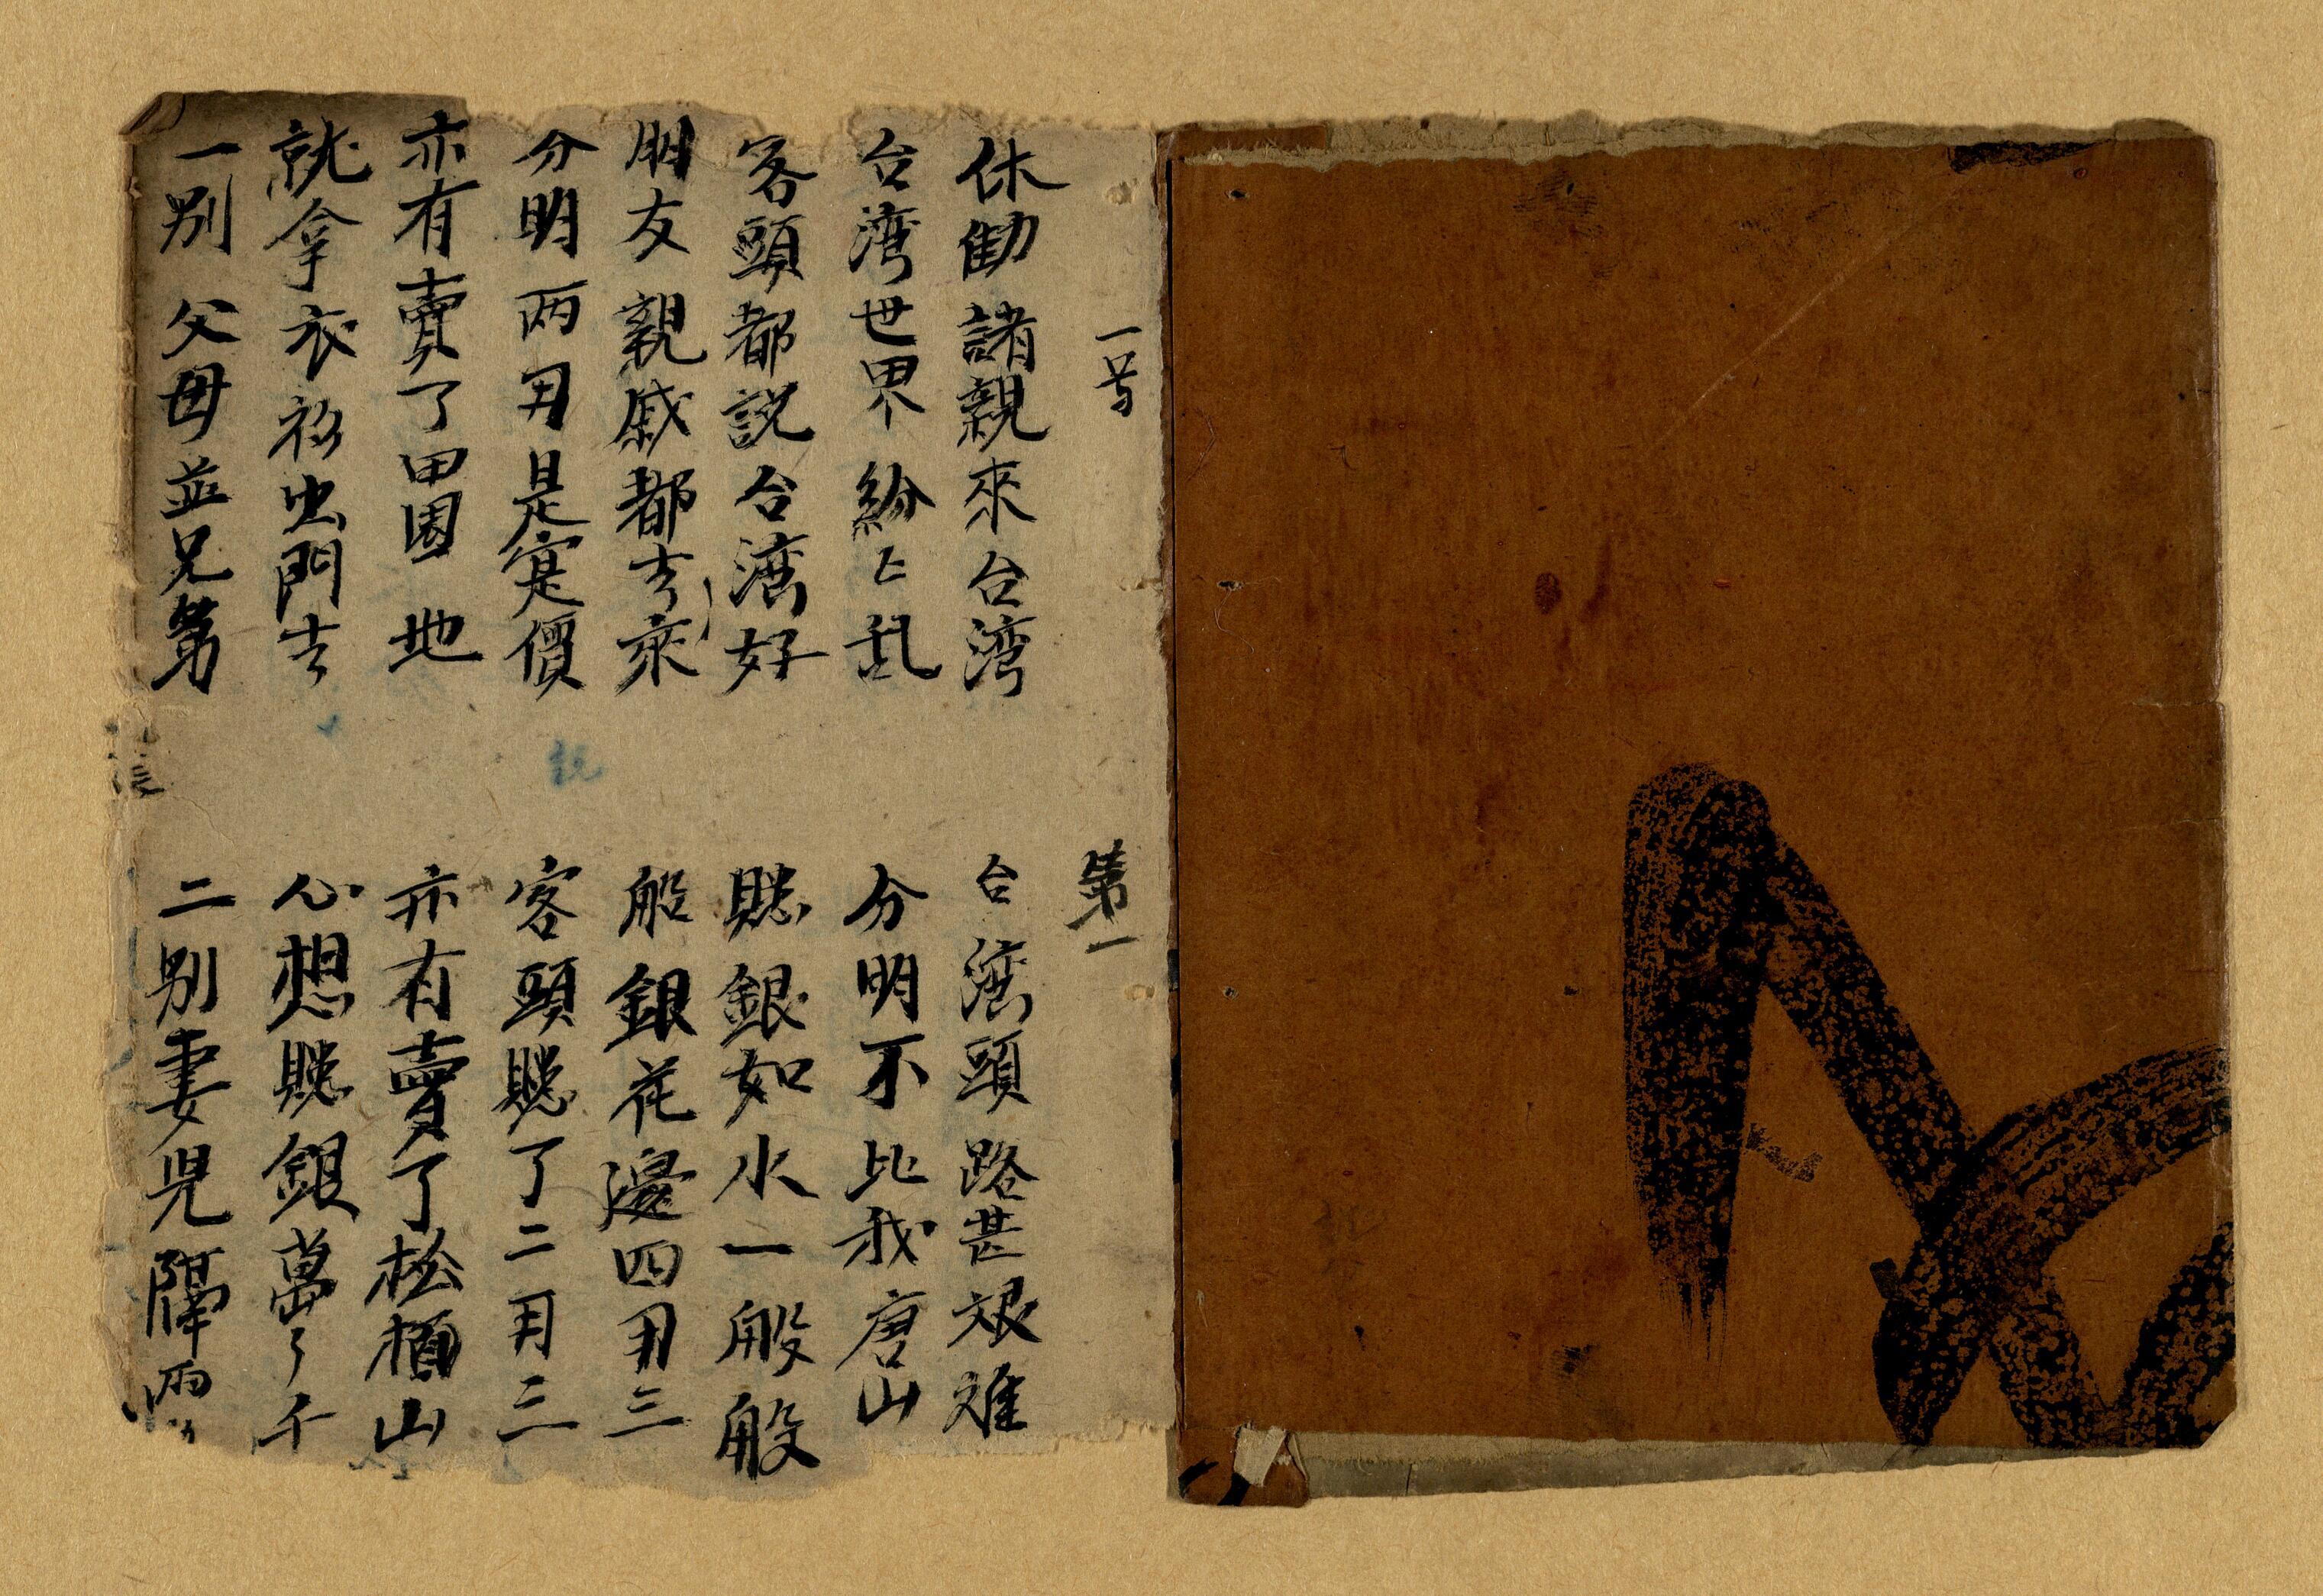 一号
第一
休勧諸親來台湾
台灣頭路甚艰难
台湾世界紛〻乱
分明不比我唐山
客頭都説台灣好
賍銀如水一般般
朋友親戚都去來
船銀花邊四月三
分明两月是寔價
客頭賍了二月三
亦有賣了田園地
亦有賣了松栢山
就拿衣衫出門去
心想賍銀萬了千
一别父母並兄第
二别妻児隔両